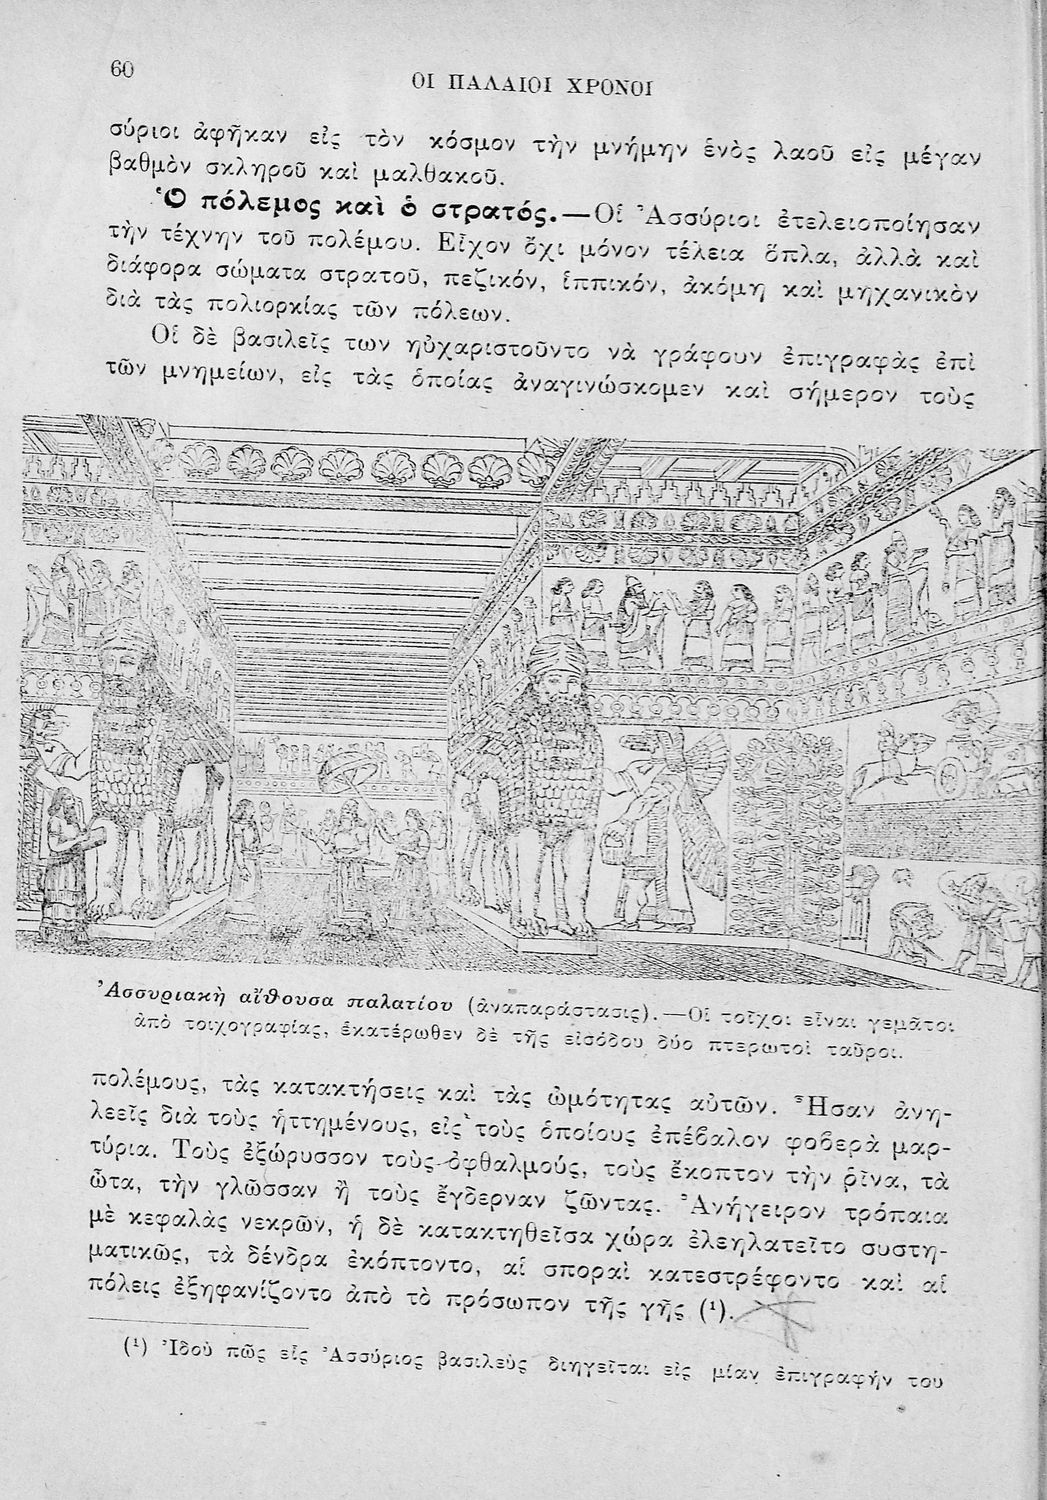 60
ΟΙ ΠΑΛΑΙΟΙ ΧΡΟΝΟΙ
σύριοι ἀφῆκαν εἰς τὸν κόσμον τὴν μνήμην ἑνὸς λαοῦ εἰς μέγαν
βαθμὸν σκληροῦ καὶ μαλθακοῦ.
Ὁ πόλεμος καὶ ὁ στρατός.—Οἱ Ἀσσύριοι ἐτελειοποίησαν
τὴν τέχνην τοῦ πολέμου. Εἶχον ὄχι μόνον τέλεια ὅπλα, ἀλλὰ καὶ
διάφορα σώματα στρατοῦ, πεζικόν, ἱππικόν, ἀκόμη καὶ μηχανικὸν
διὰ τὰς πολιορκίας τῶν πόλεων.
Οἱ δὲ βασιλεῖς των ηὐχαριστοῦντο νὰ γράφουν ἐπιγραφὰς ἐπὶ
τῶν μνημείων, εἰς τὰς ὁποίας ἀναγινώσκομεν καὶ σήμερον τοὺς
Ἀσσυριακὴ αἴθουσα παλατίου (ἀναπαράστασις).—Οἱ τοῖχοι εἶναι γεμᾶτοι
ἀπὸ τοιχογραφίας, ἑκατέρωθεν δὲ τῆς εἰσόδου δύο πτερωτοὶ ταῦροι.
πολέμους, τὰς κατακτήσεις καὶ τὰς ὠμότητας αὐτῶν. Ἦσαν ἀνη-
λεεῖς διὰ τοὺς ἡττημένους, εἰς τοὺς ὁποίους ἐπέβαλον φοβερὰ μαρ-
τύρια. Τοὺς ἐξώρυσσον τοὺς ὀφθαλμούς, τοὺς ἔκοπτον τὴν ῥῖνα, τὰ
ὦτα, τὴν γλῶσσαν ἢ τοὺς ἔγδερναν ζῶντας. Ἀνήγειρον τρόπαια
μὲ κεφαλὰς νεκρῶν, ἡ δὲ κατακτηθεῖσα χώρα ἐλεηλατεῖτο συστη-
ματικῶς, τὰ δένδρα ἐκόπτοντο, αἱ σποραὶ κατεστρέφοντο καὶ αἱ
πόλεις ἐξηφανίζοντο ἀπὸ τὸ πρόσωπον τῆς γῆς (¹).
(¹) Ἰδοὺ πῶς εἷς Ἀσσύριος βασιλεὺς διηγεῖται εἰς μίαν ἐπιγραφήν του